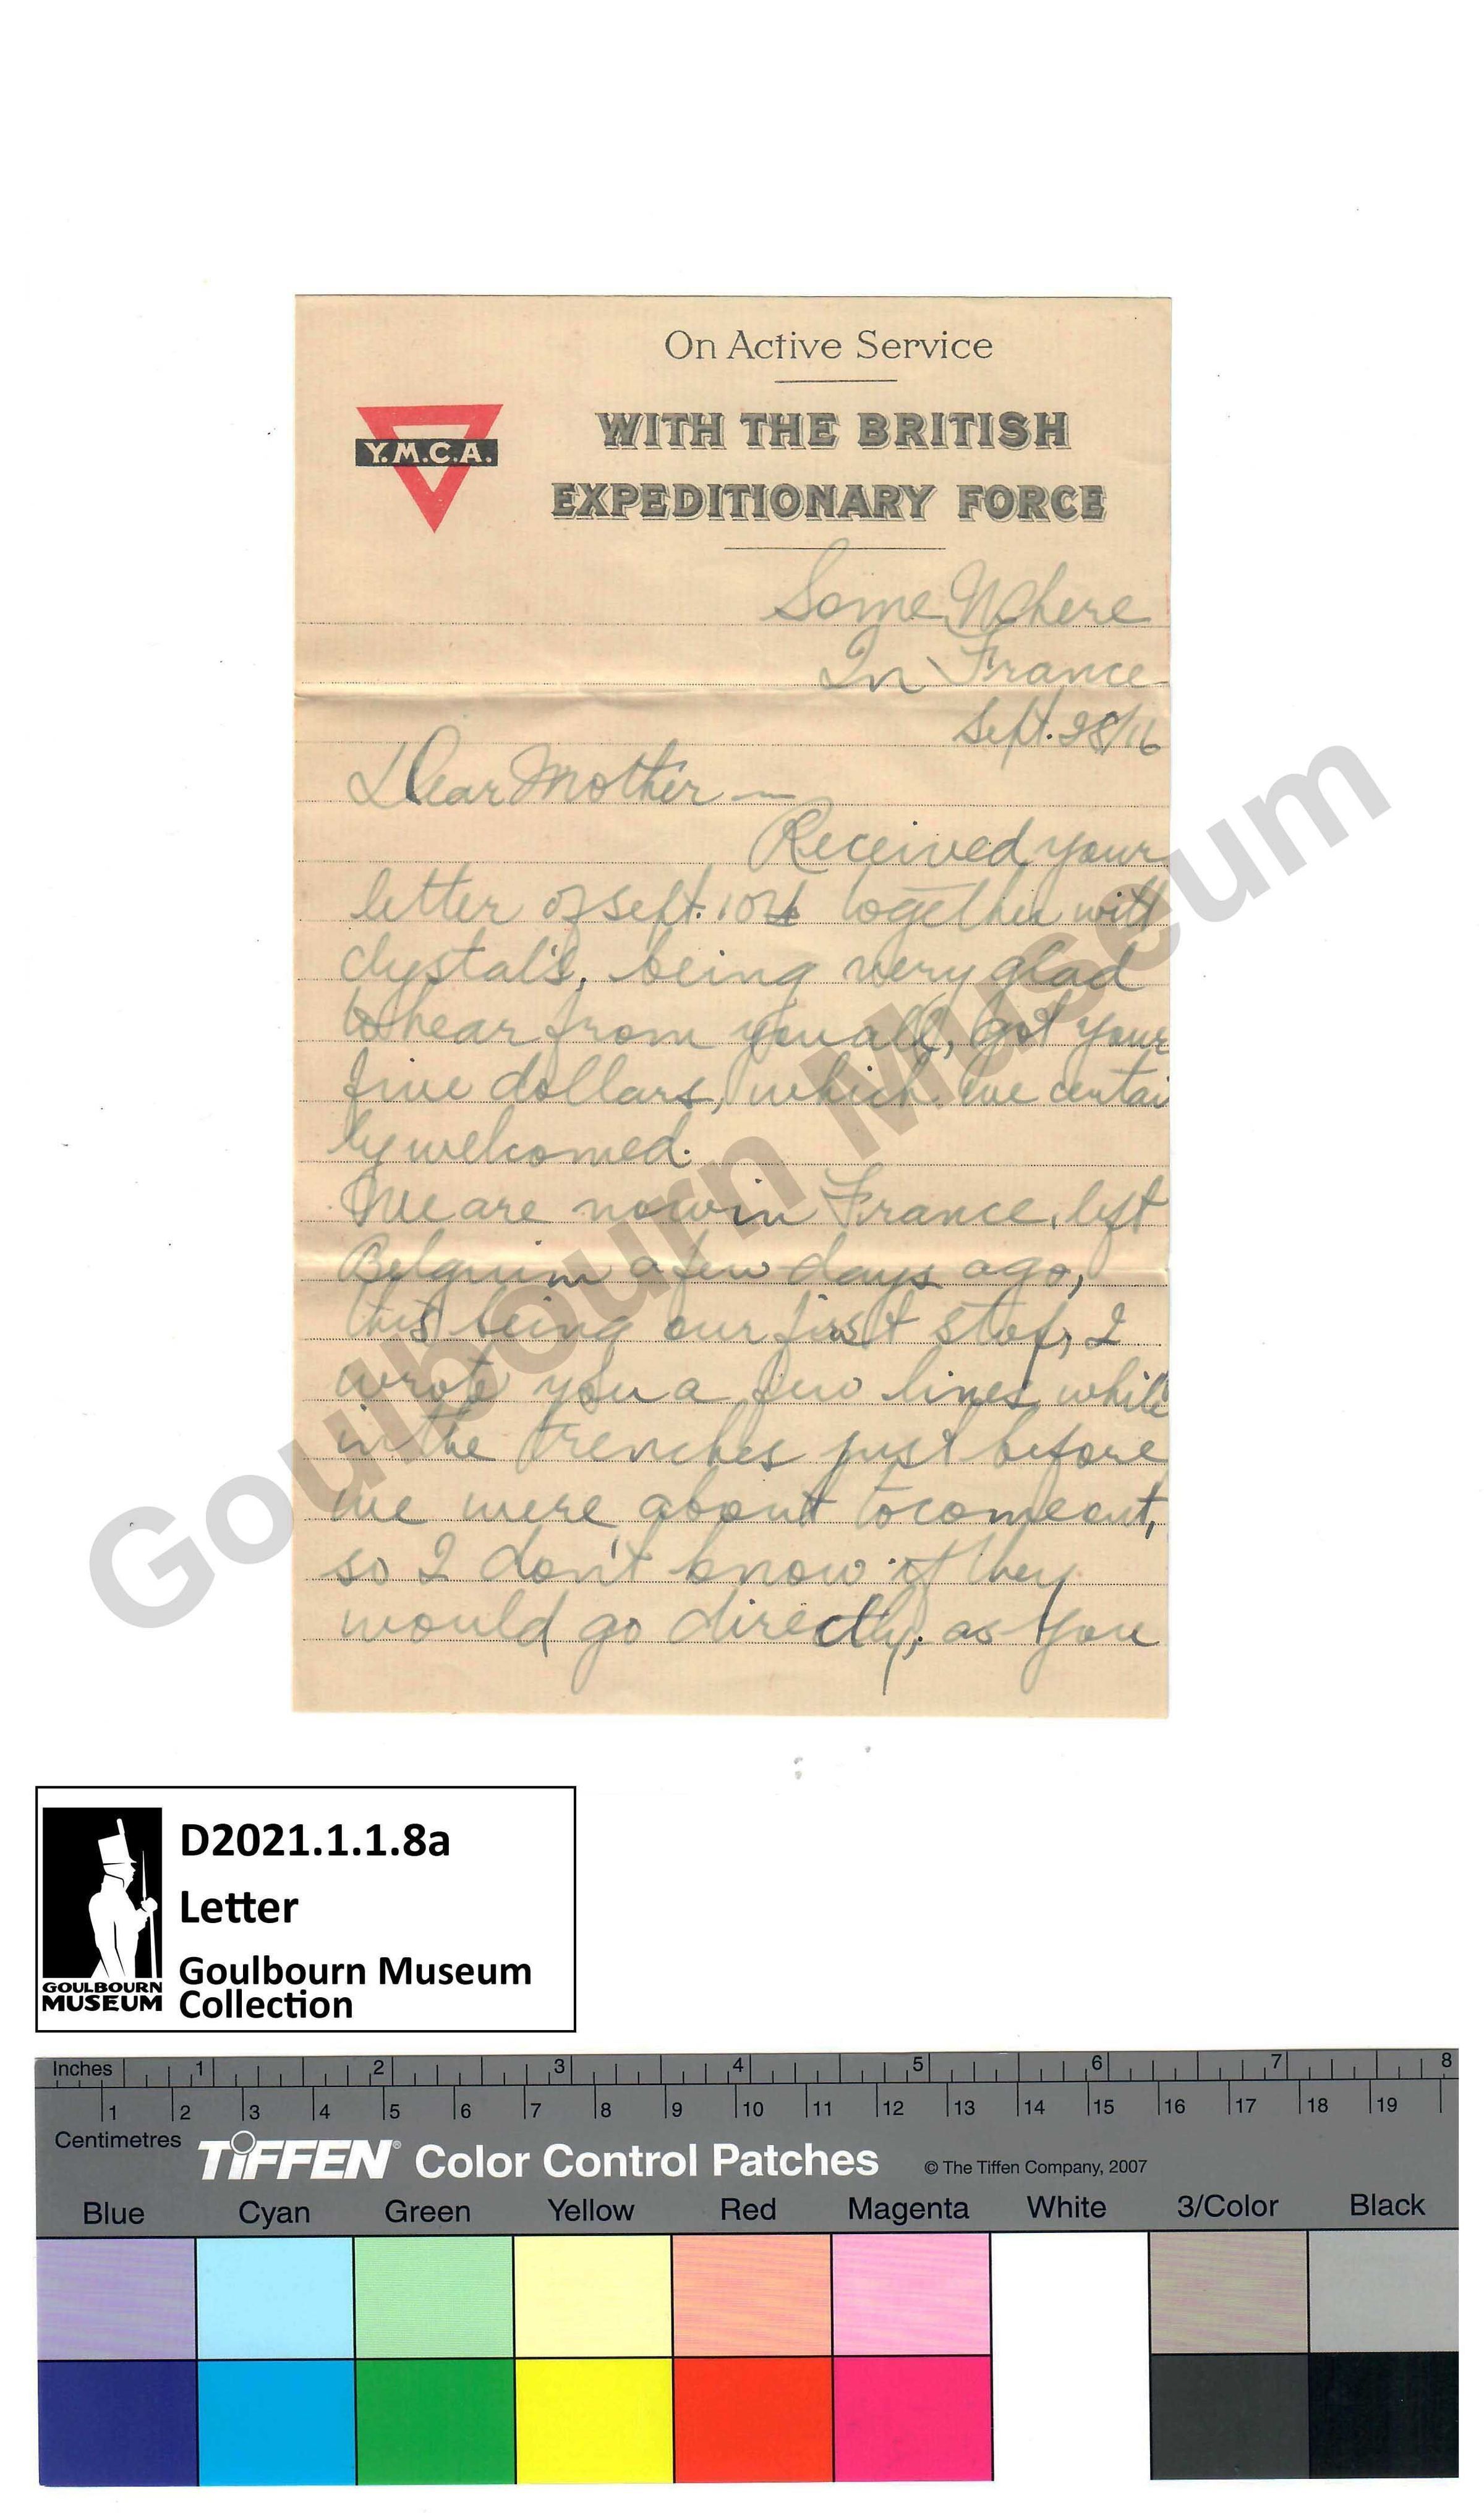 On Active Service
Y.M.C.A.
WITH THE BRITISH
EXPEDITIONARY FORCE
Some Where
In France
Sept. 28/16
Dear Mother —
Received your
letter of Sept. 10th together with
Chystal's, being very glad
to hear from you all, got your
five dollars, which we certai
ly welcomed.
We are now in France, left
Belguim a few days ago,
this being our first stop, I
wrote you a few lines while
in the trenches just before
we were about to come out,
so I don't know if they
would go directly, as you
Goulbourn Museum
D2021.1.1.8a
Letter
Goulbourn Museum
Collection
GOULBOURN
MUSEUM
Inches 1 2 3 4 5 6 7 8
1 2 3 4 5 6 7 8 9 10 11 12 13 14 15 16 17 18 19
Centimetres
TIFFEN® Color Control Patches © The Tiffen Company, 2007
Blue Cyan Green Yellow Red Magenta White 3/Color Black